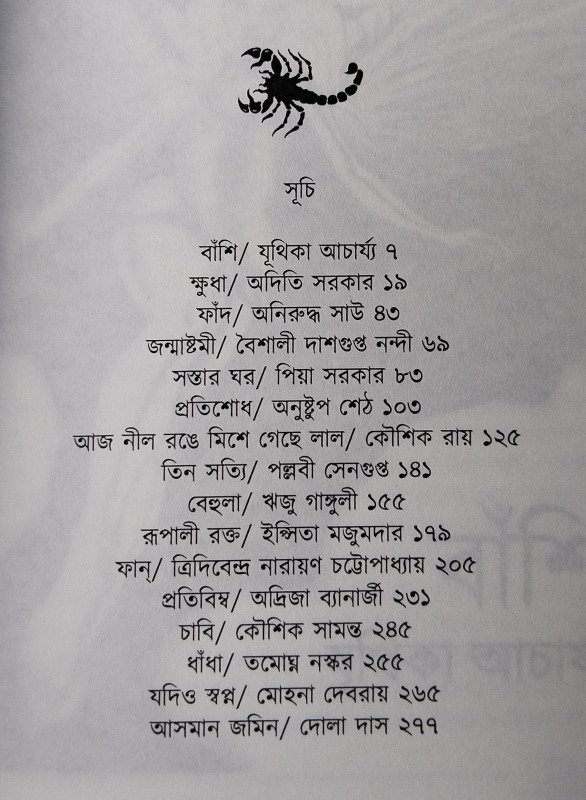 সূচি
বাঁশি/ যূথিকা আচার্য্য ৭
ক্ষুধা/ অদিতি সরকার ১৯
ফাঁদ/ অনিরুদ্ধ সাউ ৪৩
জন্মাষ্টমী/ বৈশালী দাশগুপ্ত নন্দী ৬৯
সস্তার ঘর/ পিয়া সরকার ৮৩
প্রতিশোধ/ অনুষ্টুপ শেঠ ১০৩
আজ নীল রঙে মিশে গেছে লাল/ কৌশিক রায় ১২৫
তিন সত্যি/ পল্লবী সেনগুপ্ত ১৪১
বেহুলা/ ঋজু গাঙ্গুলী ১৫৫
রূপালী রক্ত/ ইপ্সিতা মজুমদার ১৭৯
ফান্/ ত্রিদিবেন্দ্র নারায়ণ চট্টোপাধ্যায় ২০৫
প্রতিবিম্ব/ অদ্রিজা ব্যানার্জী ২৩১
চাবি/ কৌশিক সামন্ত ২৪৫
ধাঁধা/ তমোঘ্ন নস্কর ২৫৫
যদিও স্বপ্ন/ মোহনা দেবরায় ২৬৫
আসমান জমিন/ দোলা দাস ২৭৭